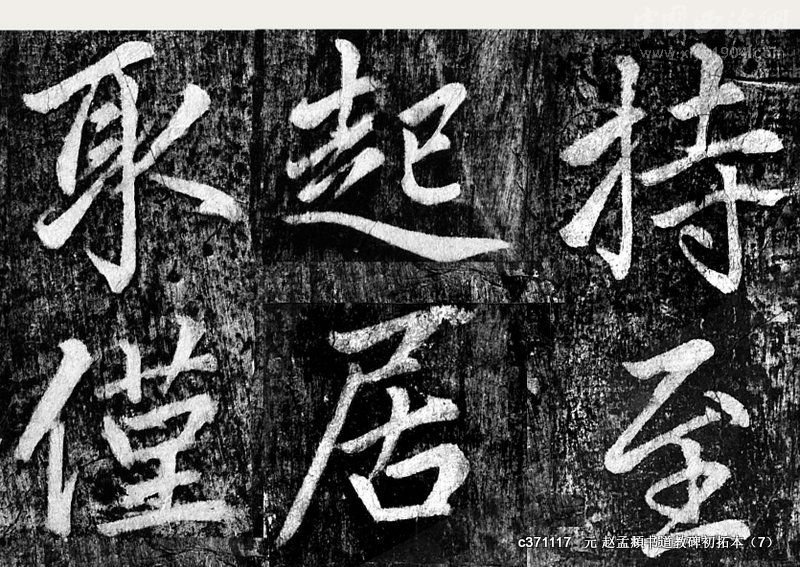 持至
起居
取僅
c371117 元 赵孟頫书道教碑初拓本（7）